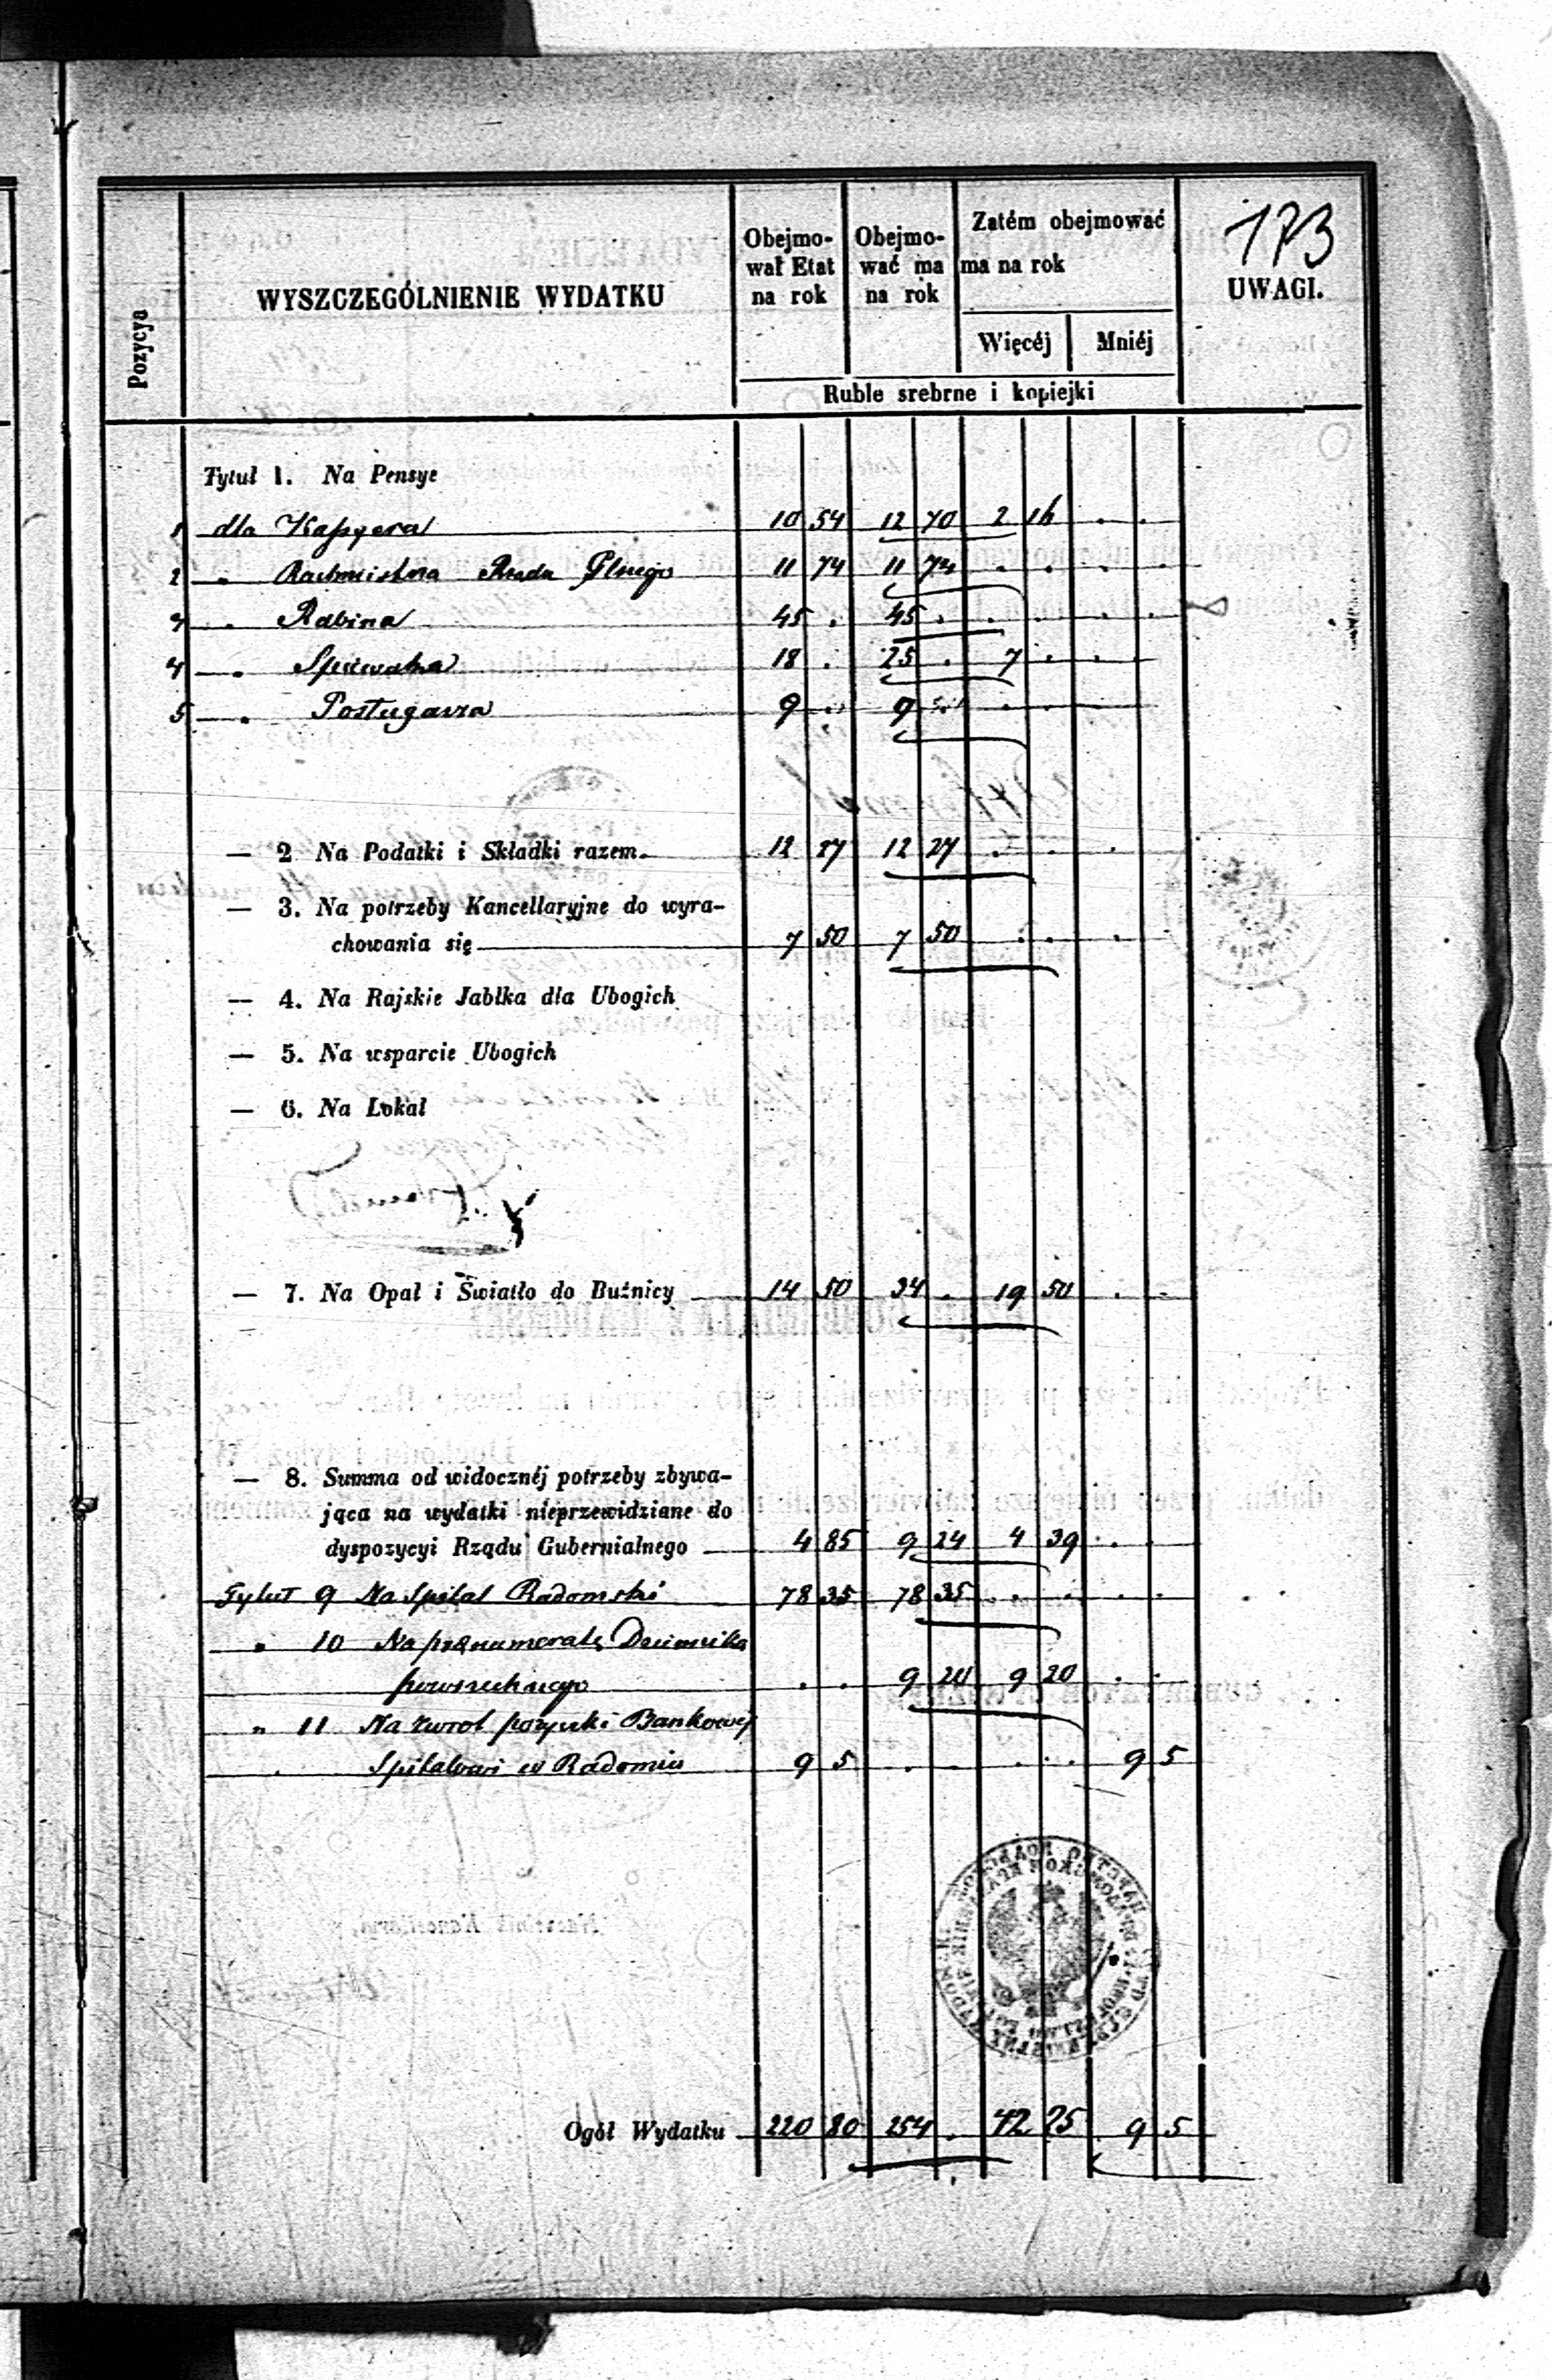 173
Pozycya
WYSZCZEGÓLNIENIE WYDATKU
Obejmo-
wał Etat
na rok
Obejmo-
wać ma
na rok
Zatém obejmować
ma na rok
Więcéj Mniéj
UWAGI.
Ruble srebrne i kopiejki
Tytuł 1. Na Pensye
1 dla Kassyera 10 54 12 70 2 16 . .
2 " Rachmistrza 11 74 11 74 . . . .
3 " Rabina 45 . 45 . . . . .
4 " Spiewaka 18 . 25 . 7 . .
5 " Posługacza 9 " 9 " . . .
— 2 Na Podatki i Składki razem. 12 27 12 27 . . .
— 3. Na potrzeby Kancellaryjne do wyra-
chowania się 7 50 7 50 . . .
— 4. Na Rajskie Jabłka dla Ubogich
— 5. Na wsparcie Ubogich
— 6. Na Lokal
— 7. Na Opał i Światło do Buźnicy 14 50 34 . 19 50 . .
— 8. Summa od widocznéj potrzeby zbywa-
jąca na wydatki nieprzewidziane do
dyspozycyi Rządu Gubernialnego 4 85 9 24 4 39 . .
Tytuł 9 Na Spital Radomski 78 35 78 35 . . . .
" 10 Na prenumeratę Dziennika
powszechnego . . 9 20 9 20 . .
" 11 Na zwrot pożyczki Bankowej
Spitalowi w Radomiu 9 5 . . . . 9 5
Ogół Wydatku 220 80 254 . 42 25 9 5